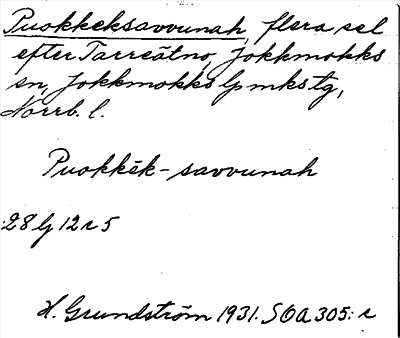 Puokkeksavvunah, flera sel
efter Tarreätno, Jokkmokks
sn, Jokkmokks lpmkstg,
Norrb. l.
Puokkēk-savvunah
28 G 12 r 5
H. Grundström 1931. SOA 305: r